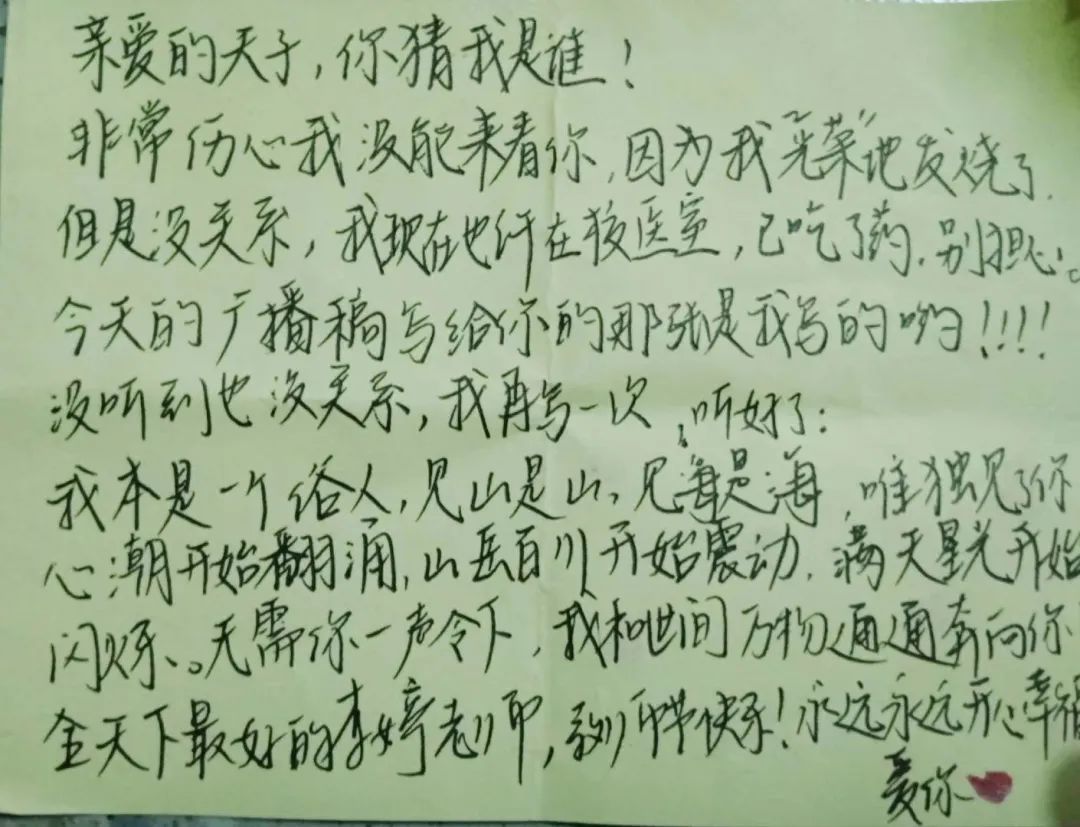 亲爱的天子，你猜我是谁！
非常伤心我没能来看你，因为我“光荣”地发烧了．
但是没关系，我现在也许在校医室，已吃了药，别担心。
今天的广播稿写给你的那张是我写的哟！！！！
没听到也没关系，我再写一次，听好了：
我本是一个俗人，见山是山，见海是海，唯独见了你
心潮开始翻涌，山岳百川开始震动，满天星光开始
闪烁、。无需你一声令下，我和世间万物通通奔向你
全天下最好的李婷老师，教师节快乐！永远永远开心幸福
爱你